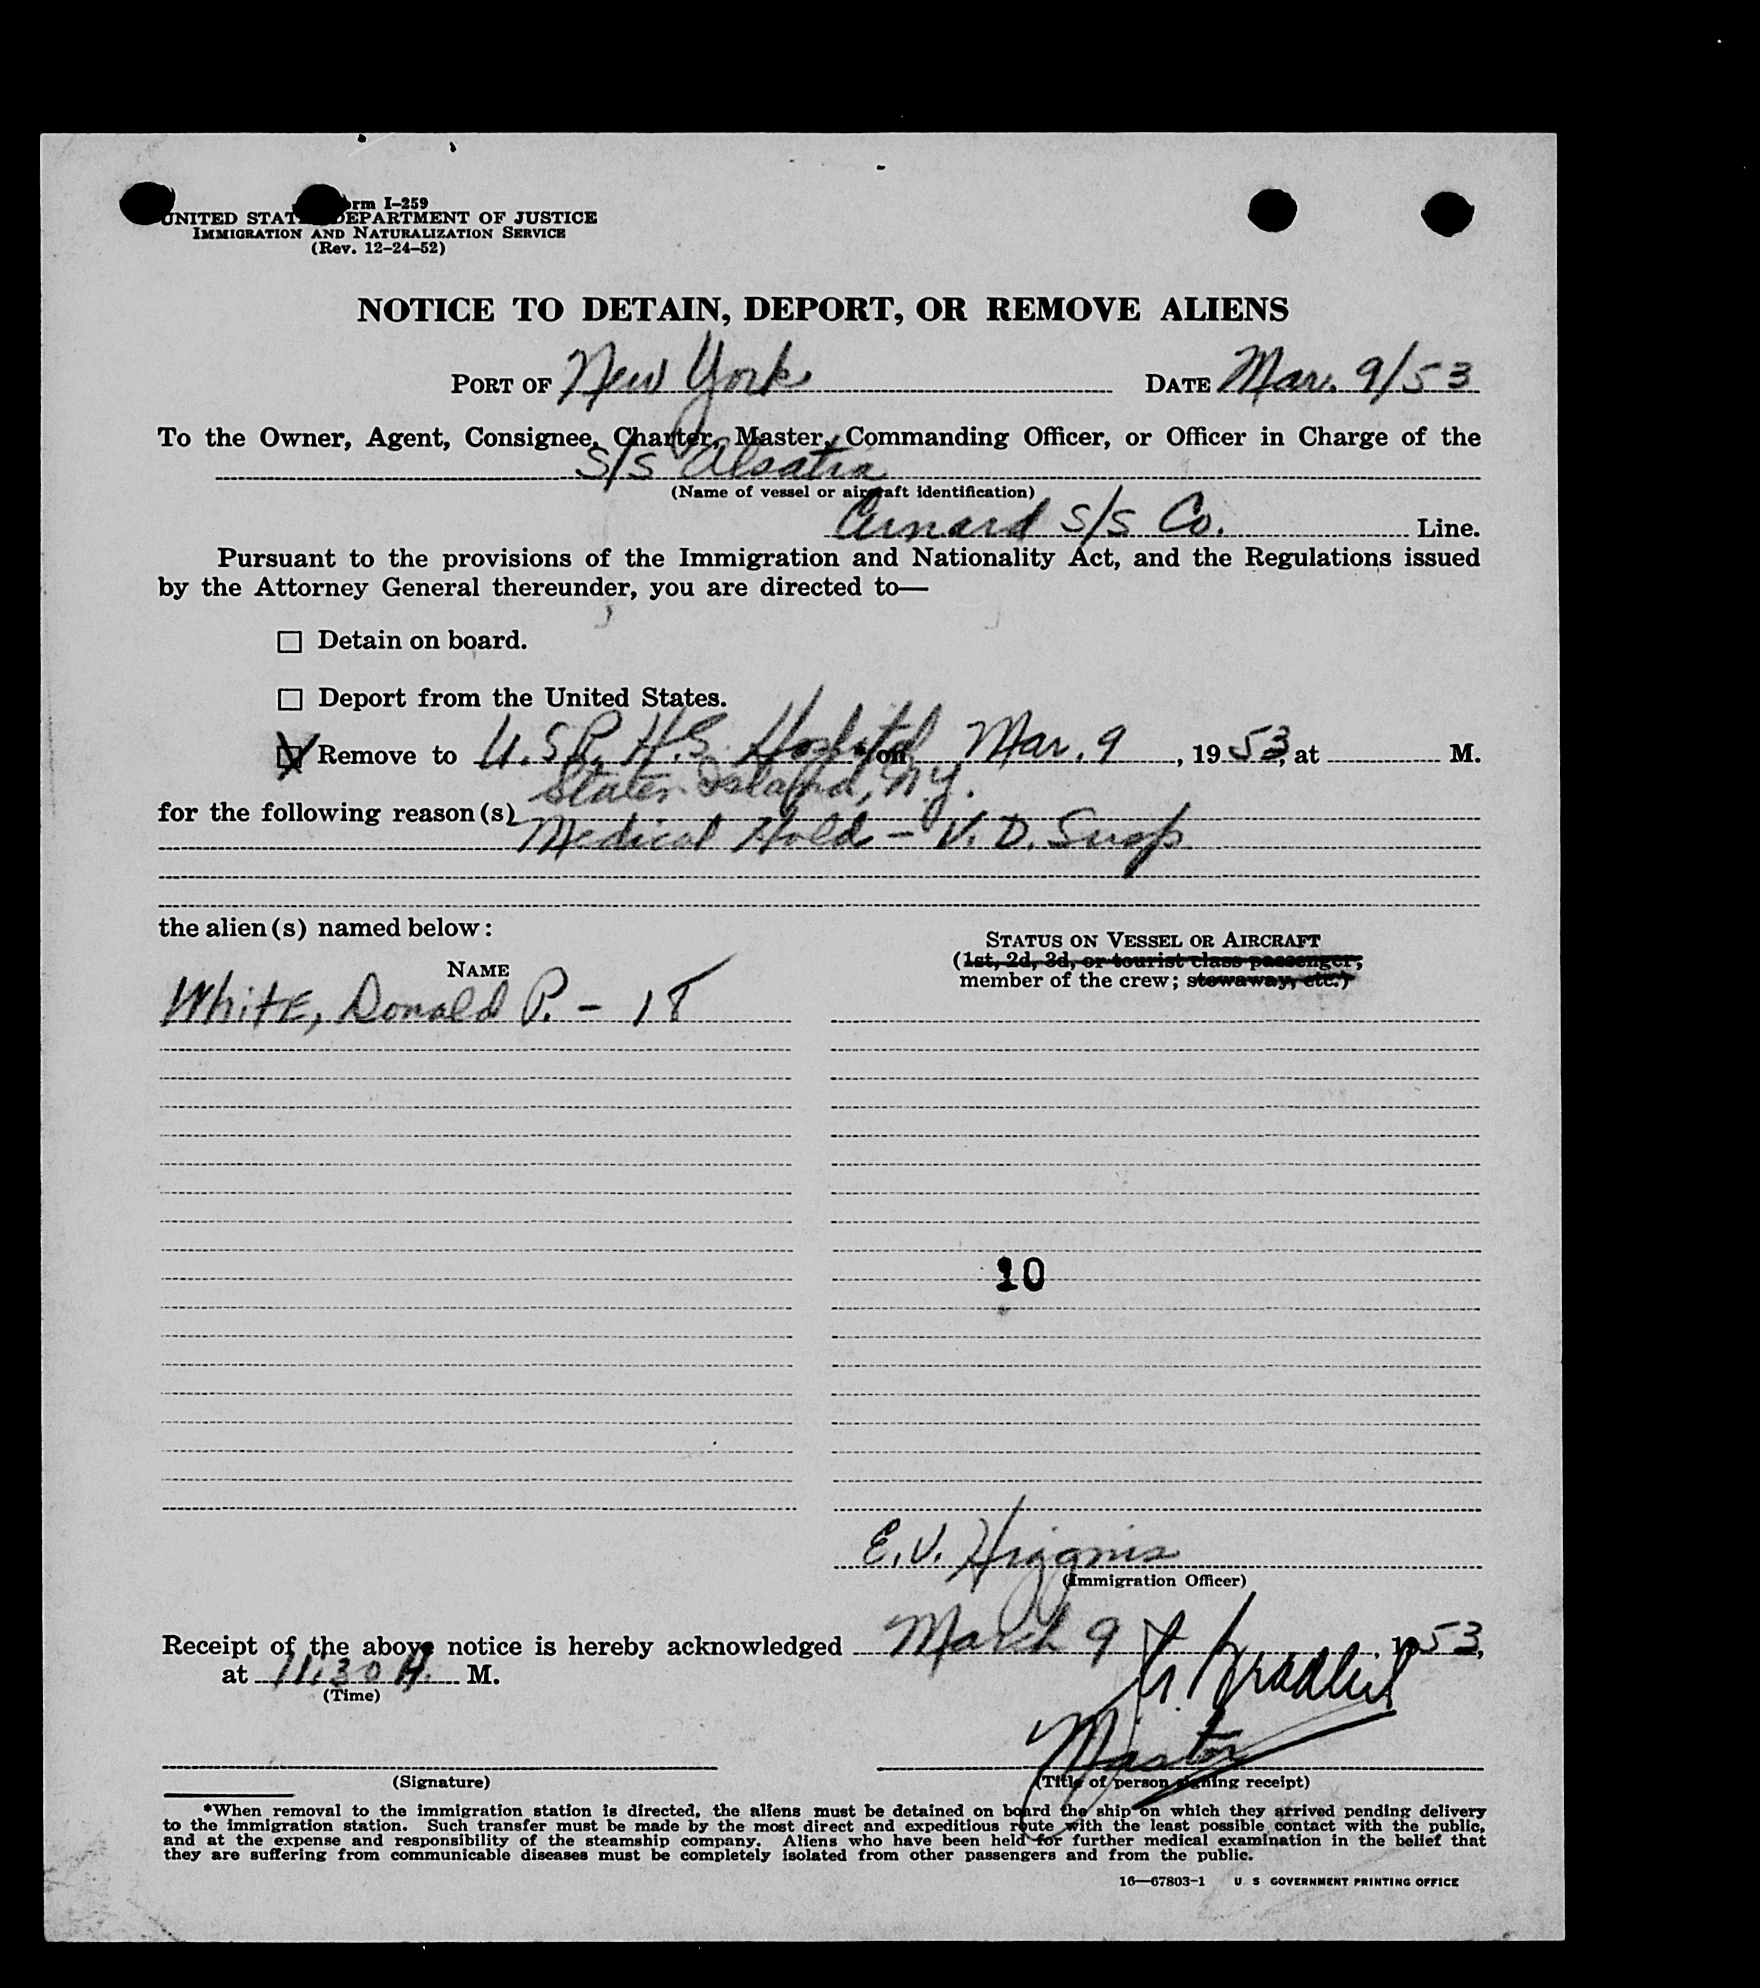 Form I-259
UNITED STATES DEPARTMENT OF JUSTICE
IMMIGRATION AND NATURALIZATION SERVICE
(Rev. 12-24-52)
NOTICE TO DETAIN, DEPORT, OR REMOVE ALIENS
PORT OF New York DATE Mar. 9/53
To the Owner, Agent, Consignee, Charter, Master, Commanding Officer, or Officer in Charge of the
S/S Alsatia
(Name of vessel or aircraft identification)
Cunard S/S Co. Line.
Pursuant to the provisions of the Immigration and Nationality Act, and the Regulations issued
by the Attorney General thereunder, you are directed to—
Detain on board.
Deport from the United States.
Remove to U.S.P.H.S. Hospital * on Mar. 9, 1953, at M.
Staten Island, N.Y.
for the following reason(s)
Medical Hold - V.D. Susp.
the alien(s) named below:
STATUS ON VESSEL OR AIRCRAFT
(1st, 2d, 3d, or tourist class passenger;
member of the crew; stowaway, etc.)
NAME
White, Donald P. - 18
10
E.V. Higgins
(Immigration Officer)
Receipt of the above notice is hereby acknowledged March 9, 1953,
at 11:30 A. M.
(Time)
Master
(Signature) (Title of person signing receipt)
*When removal to the immigration station is directed, the aliens must be detained on board the ship on which they arrived pending delivery
to the immigration station. Such transfer must be made by the most direct and expeditious route with the least possible contact with the public,
and at the expense and responsibility of the steamship company. Aliens who have been held for further medical examination in the belief that
they are suffering from communicable diseases must be completely isolated from other passengers and from the public.
16—67803-1 U. S. GOVERNMENT PRINTING OFFICE